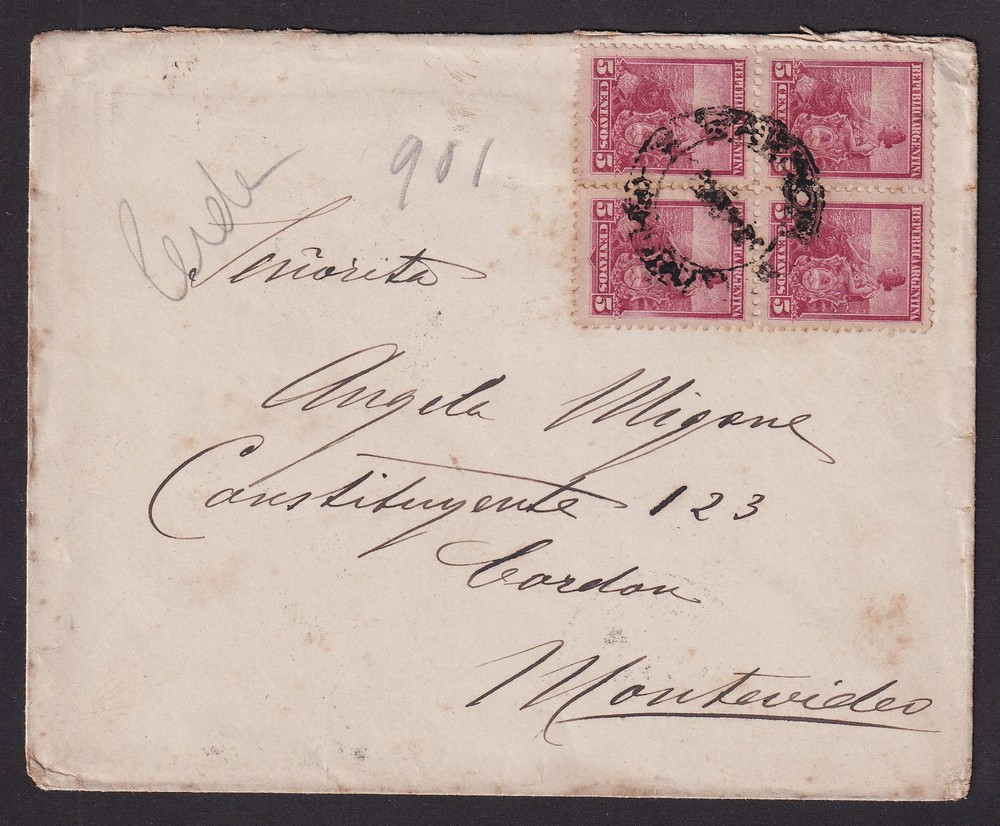 REPUBLICA ARGENTINA
5 CENTAVOS 5
REPUBLICA ARGENTINA
5 CENTAVOS 5
REPUBLICA ARGENTINA
5 CENTAVOS 5
REPUBLICA ARGENTINA
5 CENTAVOS 5
901
Señorita
Angela Migone
Constituyente 123
Cordon
Montevideo